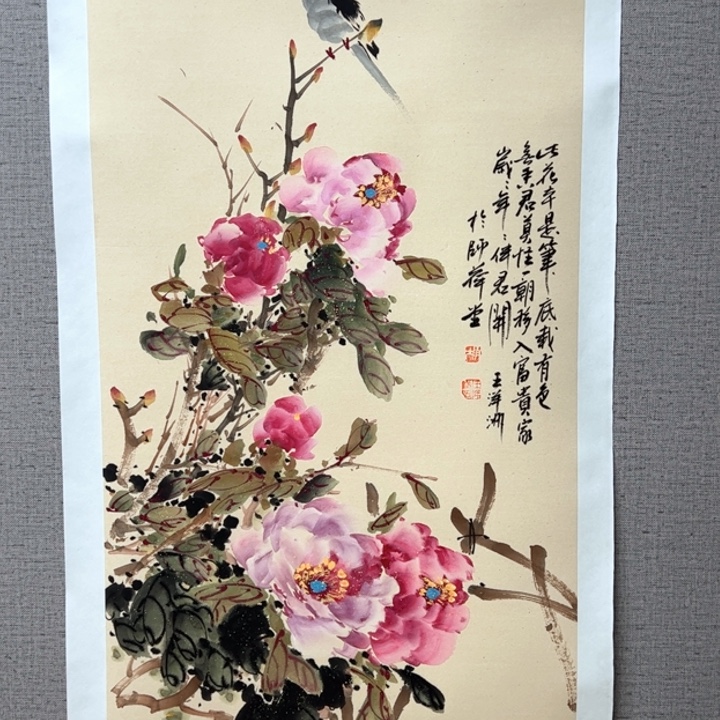 此花本是筆底栽有色
無香君莫怪一朝移入富貴家
歲々年々伴君開 王洋洲
於師堂